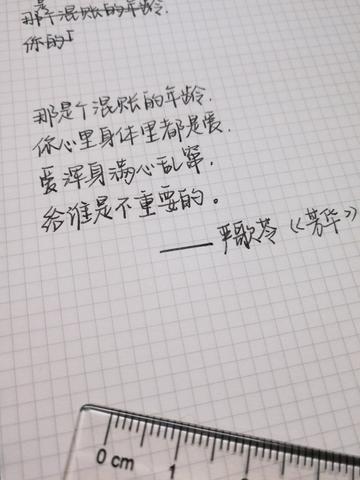 是
那个混账的年龄.
你的
那是个混账的年龄.
你心里身体里都是爱.
爱浑身满心乱窜,
给谁是不重要的。
——严歌苓《芳华》
0 cm 1